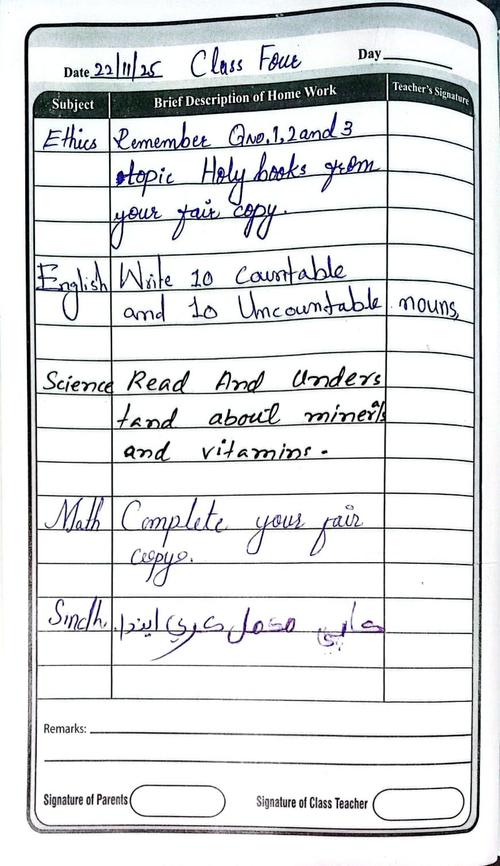 Date 22/11/25 Class Four Day
Subject Brief Description of Home Work Teacher's Signature
Ethics Remember Qno.1,2and3
topic Holy books from
your fair copy.
English Write 10 Countable
and 10 Uncountable nouns,
Science Read And Unders
tand about minerals
and vitamins.
Math Complete your fair
copy.
Sindh. ڪاپي مڪمل ڪري ايندا.
Remarks:
Signature of Parents Signature of Class Teacher